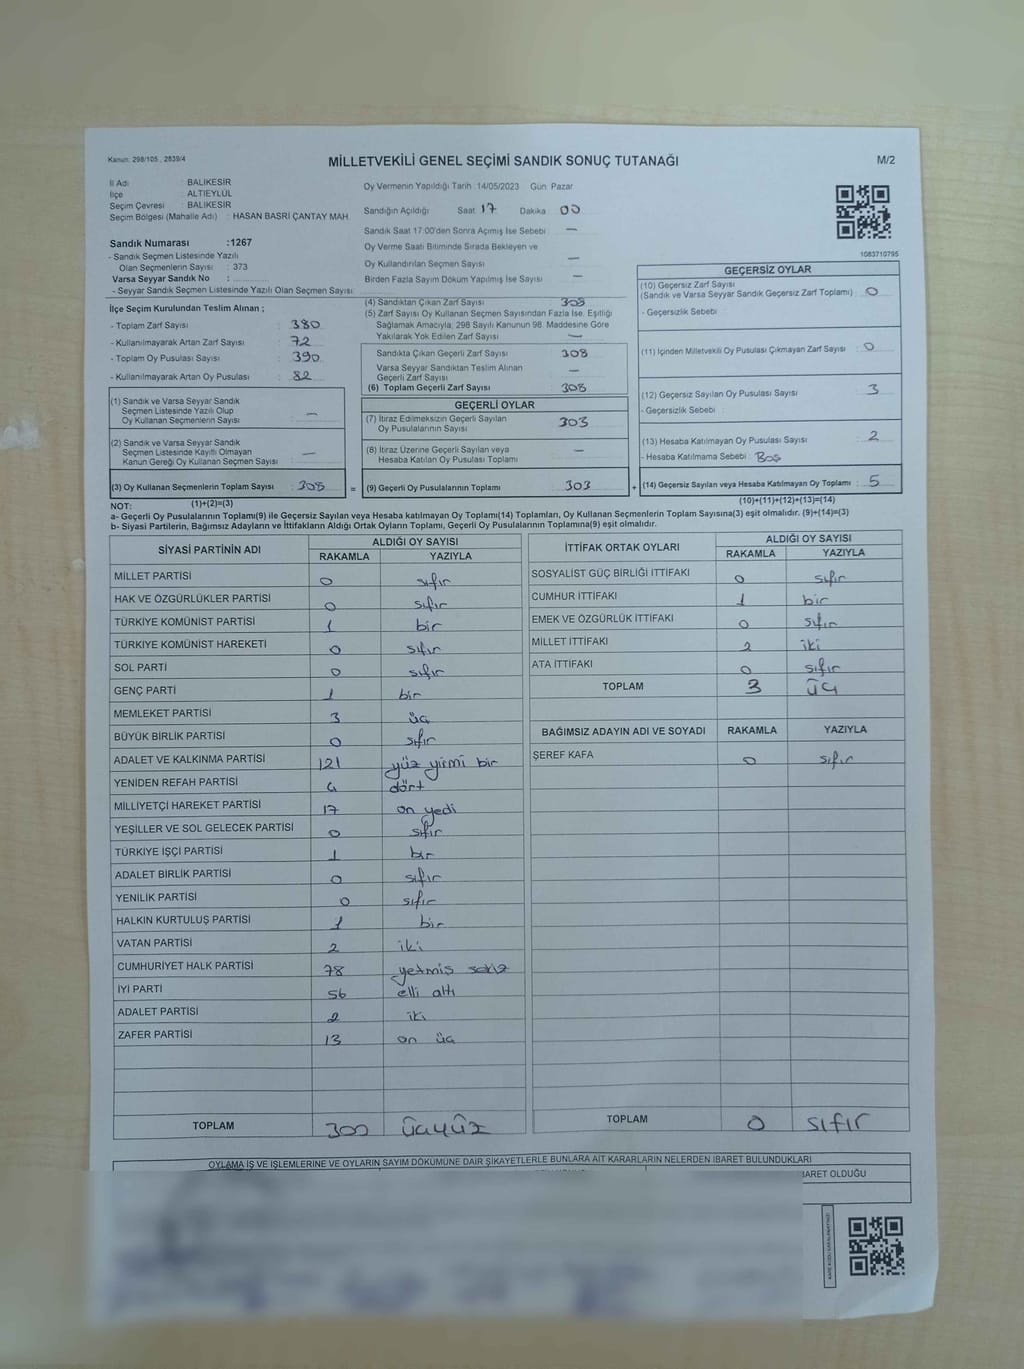 Kanun: 298/105 , 2839/4
MİLLETVEKİLİ GENEL SEÇİMİ SANDIK SONUÇ TUTANAĞI
M/2
İl Adı : BALIKESİR
İlçe : ALTIEYLÜL
Seçim Çevresi : BALIKESİR
Seçim Bölgesi (Mahalle Adı) : HASAN BASRİ ÇANTAY MAH.
Sandık Numarası :1267
- Sandık Seçmen Listesinde Yazılı
Olan Seçmenlerin Sayısı : 373
Varsa Seyyar Sandık No :
- Seyyar Sandık Seçmen Listesinde Yazılı Olan Seçmen Sayısı:
Oy Vermenin Yapıldığı Tarih 14/05/2023 Gün Pazar
Sandığın Açıldığı Saat 17 Dakika 00
Sandık Saat 17:00'den Sonra Açımış İse Sebebi : —
Oy Verme Saati Bitiminde Sırada Bekleyen ve
Oy Kullandırılan Seçmen Sayısı —
Birden Fazla Sayım Döküm Yapılmış İse Sayısı —
1083710795
İlçe Seçim Kurulundan Teslim Alınan ;
- Toplam Zarf Sayısı : 380
- Kullanılmayarak Artan Zarf Sayısı : 72
- Toplam Oy Pusulası Sayısı : 390
- Kullanılmayarak Artan Oy Pusulası : 82
(1) Sandık ve Varsa Seyyar Sandık
Seçmen Listesinde Yazılı Olup
Oy Kullanan Seçmenlerin Sayısı : —
(2) Sandık ve Varsa Seyyar Sandık
Seçmen Listesinde Kayıtlı Olmayan
Kanun Gereği Oy Kullanan Seçmen Sayısı : —
(3) Oy Kullanan Seçmenlerin Toplam Sayısı : 308 =
(4) Sandıktan Çıkan Zarf Sayısı 308
(5) Zarf Sayısı Oy Kullanan Seçmen Sayısından Fazla İse, Eşitliği
Sağlamak Amacıyla, 298 Sayılı Kanunun 98. Maddesine Göre
Yakılarak Yok Edilen Zarf Sayısı —
Sandıkta Çıkan Geçerli Zarf Sayısı 308
Varsa Seyyar Sandıktan Teslim Alınan
Geçerli Zarf Sayısı —
(6) Toplam Geçerli Zarf Sayısı 308
GEÇERLİ OYLAR
(7) İtiraz Edilmeksizin Geçerli Sayılan
Oy Pusulalarının Sayısı 303
(8) İtiraz Üzerine Geçerli Sayılan veya
Hesaba Katılan Oy Pusulası Toplamı —
(9) Geçerli Oy Pusulalarının Toplamı 303 +
GEÇERSİZ OYLAR
(10) Geçersiz Zarf Sayısı
(Sandık ve Varsa Seyyar Sandık Geçersiz Zarf Toplamı) : 0
- Geçersizlik Sebebi :
(11) İçinden Milletvekili Oy Pusulası Çıkmayan Zarf Sayısı : 0
(12) Geçersiz Sayılan Oy Pusulası Sayısı 3
- Geçersizlik Sebebi :
(13) Hesaba Katılmayan Oy Pusulası Sayısı : 2
- Hesaba Katılmama Sebebi : Boş
(14) Geçersiz Sayılan veya Hesaba Katılmayan Oy Toplamı : 5
NOT: (1)+(2)=(3)
(10)+(11)+(12)+(13)=(14)
a- Geçerli Oy Pusulalarının Toplamı(9) ile Geçersiz Sayılan veya Hesaba katılmayan Oy Toplamı(14) Toplamları, Oy Kullanan Seçmenlerin Toplam Sayısına(3) eşit olmalıdır. (9)+(14)=(3)
b- Siyasi Partilerin, Bağımsız Adayların ve İttifakların Aldığı Ortak Oyların Toplamı, Geçerli Oy Pusulalarının Toplamına(9) eşit olmalıdır.
SİYASİ PARTİNİN ADI ALDIĞI OY SAYISI
RAKAMLA YAZIYLA
MİLLET PARTİSİ 0 sıfır
HAK VE ÖZGÜRLÜKLER PARTİSİ 0 sıfır
TÜRKİYE KOMÜNİST PARTİSİ 1 bir
TÜRKİYE KOMÜNİST HAREKETİ 0 sıfır
SOL PARTİ 0 sıfır
GENÇ PARTİ 1 bir
MEMLEKET PARTİSİ 3 üç
BÜYÜK BİRLİK PARTİSİ 0 sıfır
ADALET VE KALKINMA PARTİSİ 121 yüz yirmi bir
YENİDEN REFAH PARTİSİ 4 dört
MİLLİYETÇİ HAREKET PARTİSİ 17 on yedi
YEŞİLLER VE SOL GELECEK PARTİSİ 0 sıfır
TÜRKİYE İŞÇİ PARTİSİ 1 bir
ADALET BİRLİK PARTİSİ 0 sıfır
YENİLİK PARTİSİ 0 sıfır
HALKIN KURTULUŞ PARTİSİ 1 bir
VATAN PARTİSİ 2 iki
CUMHURİYET HALK PARTİSİ 78 yetmiş sekiz
İYİ PARTİ 56 elli altı
ADALET PARTİSİ 2 iki
ZAFER PARTİSİ 13 on üç
TOPLAM 300 üçyüz
İTTİFAK ORTAK OYLARI ALDIĞI OY SAYISI
RAKAMLA YAZIYLA
SOSYALİST GÜÇ BİRLİĞİ İTTİFAKI 0 sıfır
CUMHUR İTTİFAKI 1 bir
EMEK VE ÖZGÜRLÜK İTTİFAKI 0 sıfır
MİLLET İTTİFAKI 2 iki
ATA İTTİFAKI 0 sıfır
TOPLAM 3 üç
BAĞIMSIZ ADAYIN ADI VE SOYADI RAKAMLA YAZIYLA
ŞEREF KAFA 0 sıfır
TOPLAM 0 sıfır
OYLAMA İŞ VE İŞLEMLERİNE VE OYLARIN SAYIM DÖKÜMÜNE DAİR ŞİKAYETLERLE BUNLARA AİT KARARLARIN NELERDEN İBARET BULUNDUKLARI
BARET OLDUĞU